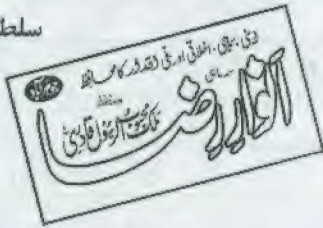 سلط
دینی، سیاسی، اخلاقی اور ملی اقدار کا محافظ
سہ ماہی
انوارِ رضا
ملک محبوب الرسول قادری